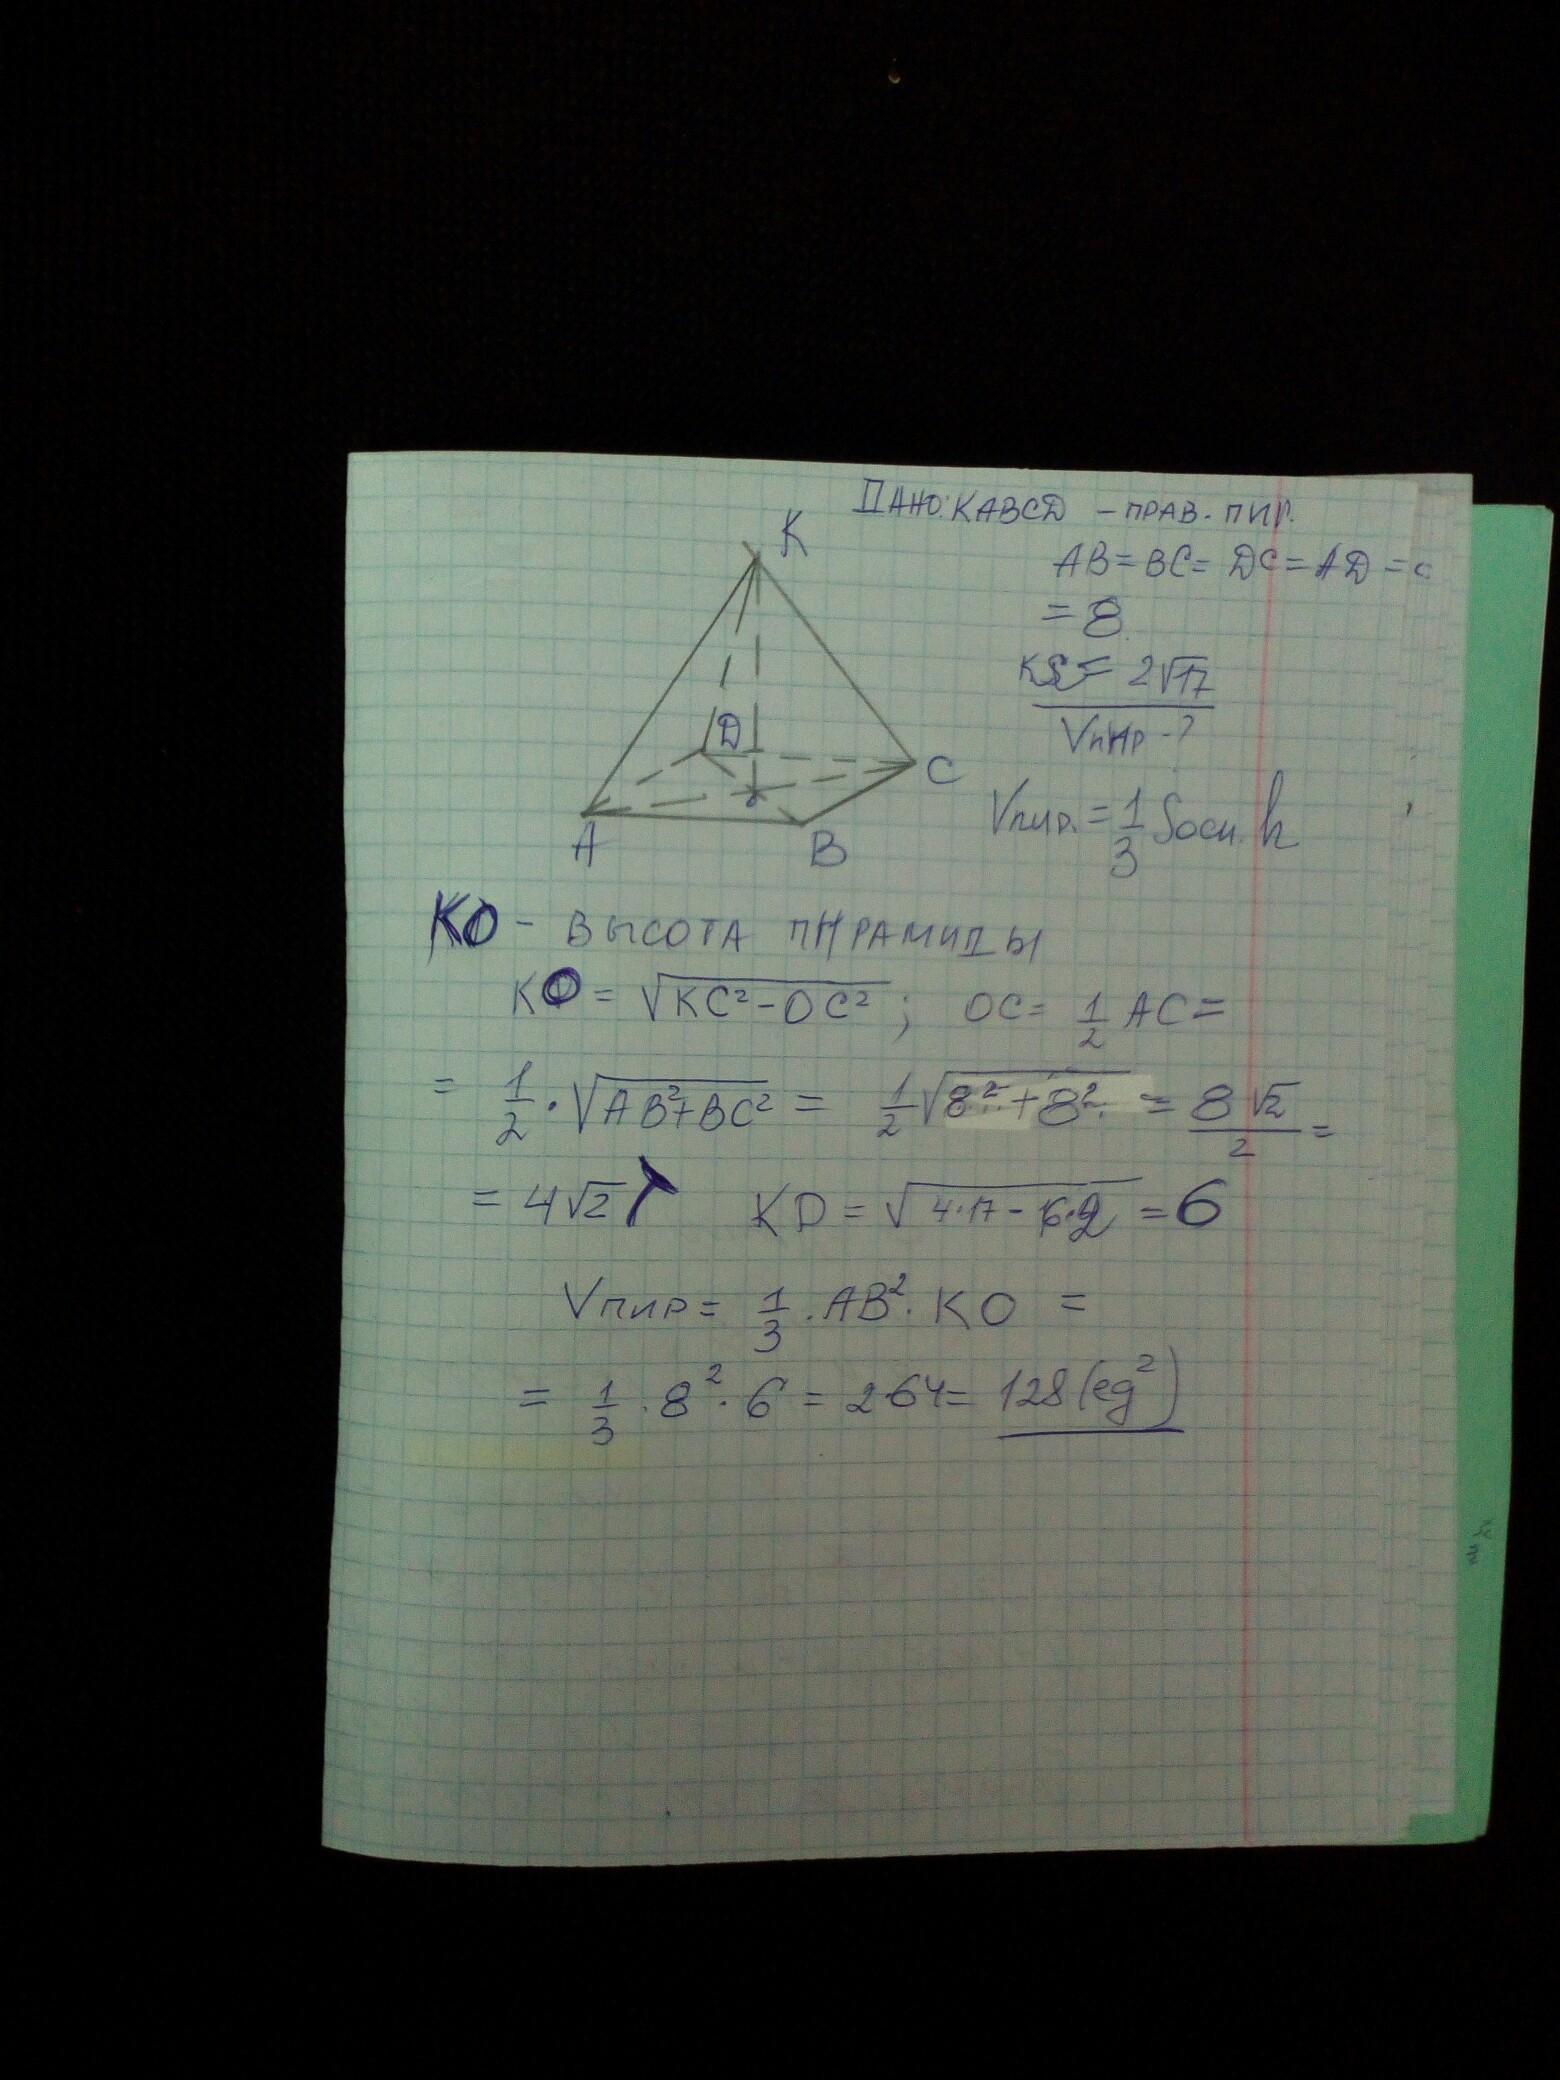 ДАНО: KABCD – ПРАВ. ПИР.
AB = BC = DC = AD =
= 8
KC = 2√17
Vпир - ?
K
D
C
A
B
Vпир. = 1/3 Sосн. h
KO – ВЫСОТА ПИРАМИДЫ
KO = √(KC² – OC²) ; OC = 1/2 AC =
= 1/2 · √(AB² + BC²) = 1/2 √(8² + 8²) = 8√2/2 =
= 4√2 KD = √(4·17 – 16·2) = 6
Vпир = 1/3 · AB² · KO =
= 1/3 · 8² · 6 = 2·64 = 128 (ед²)